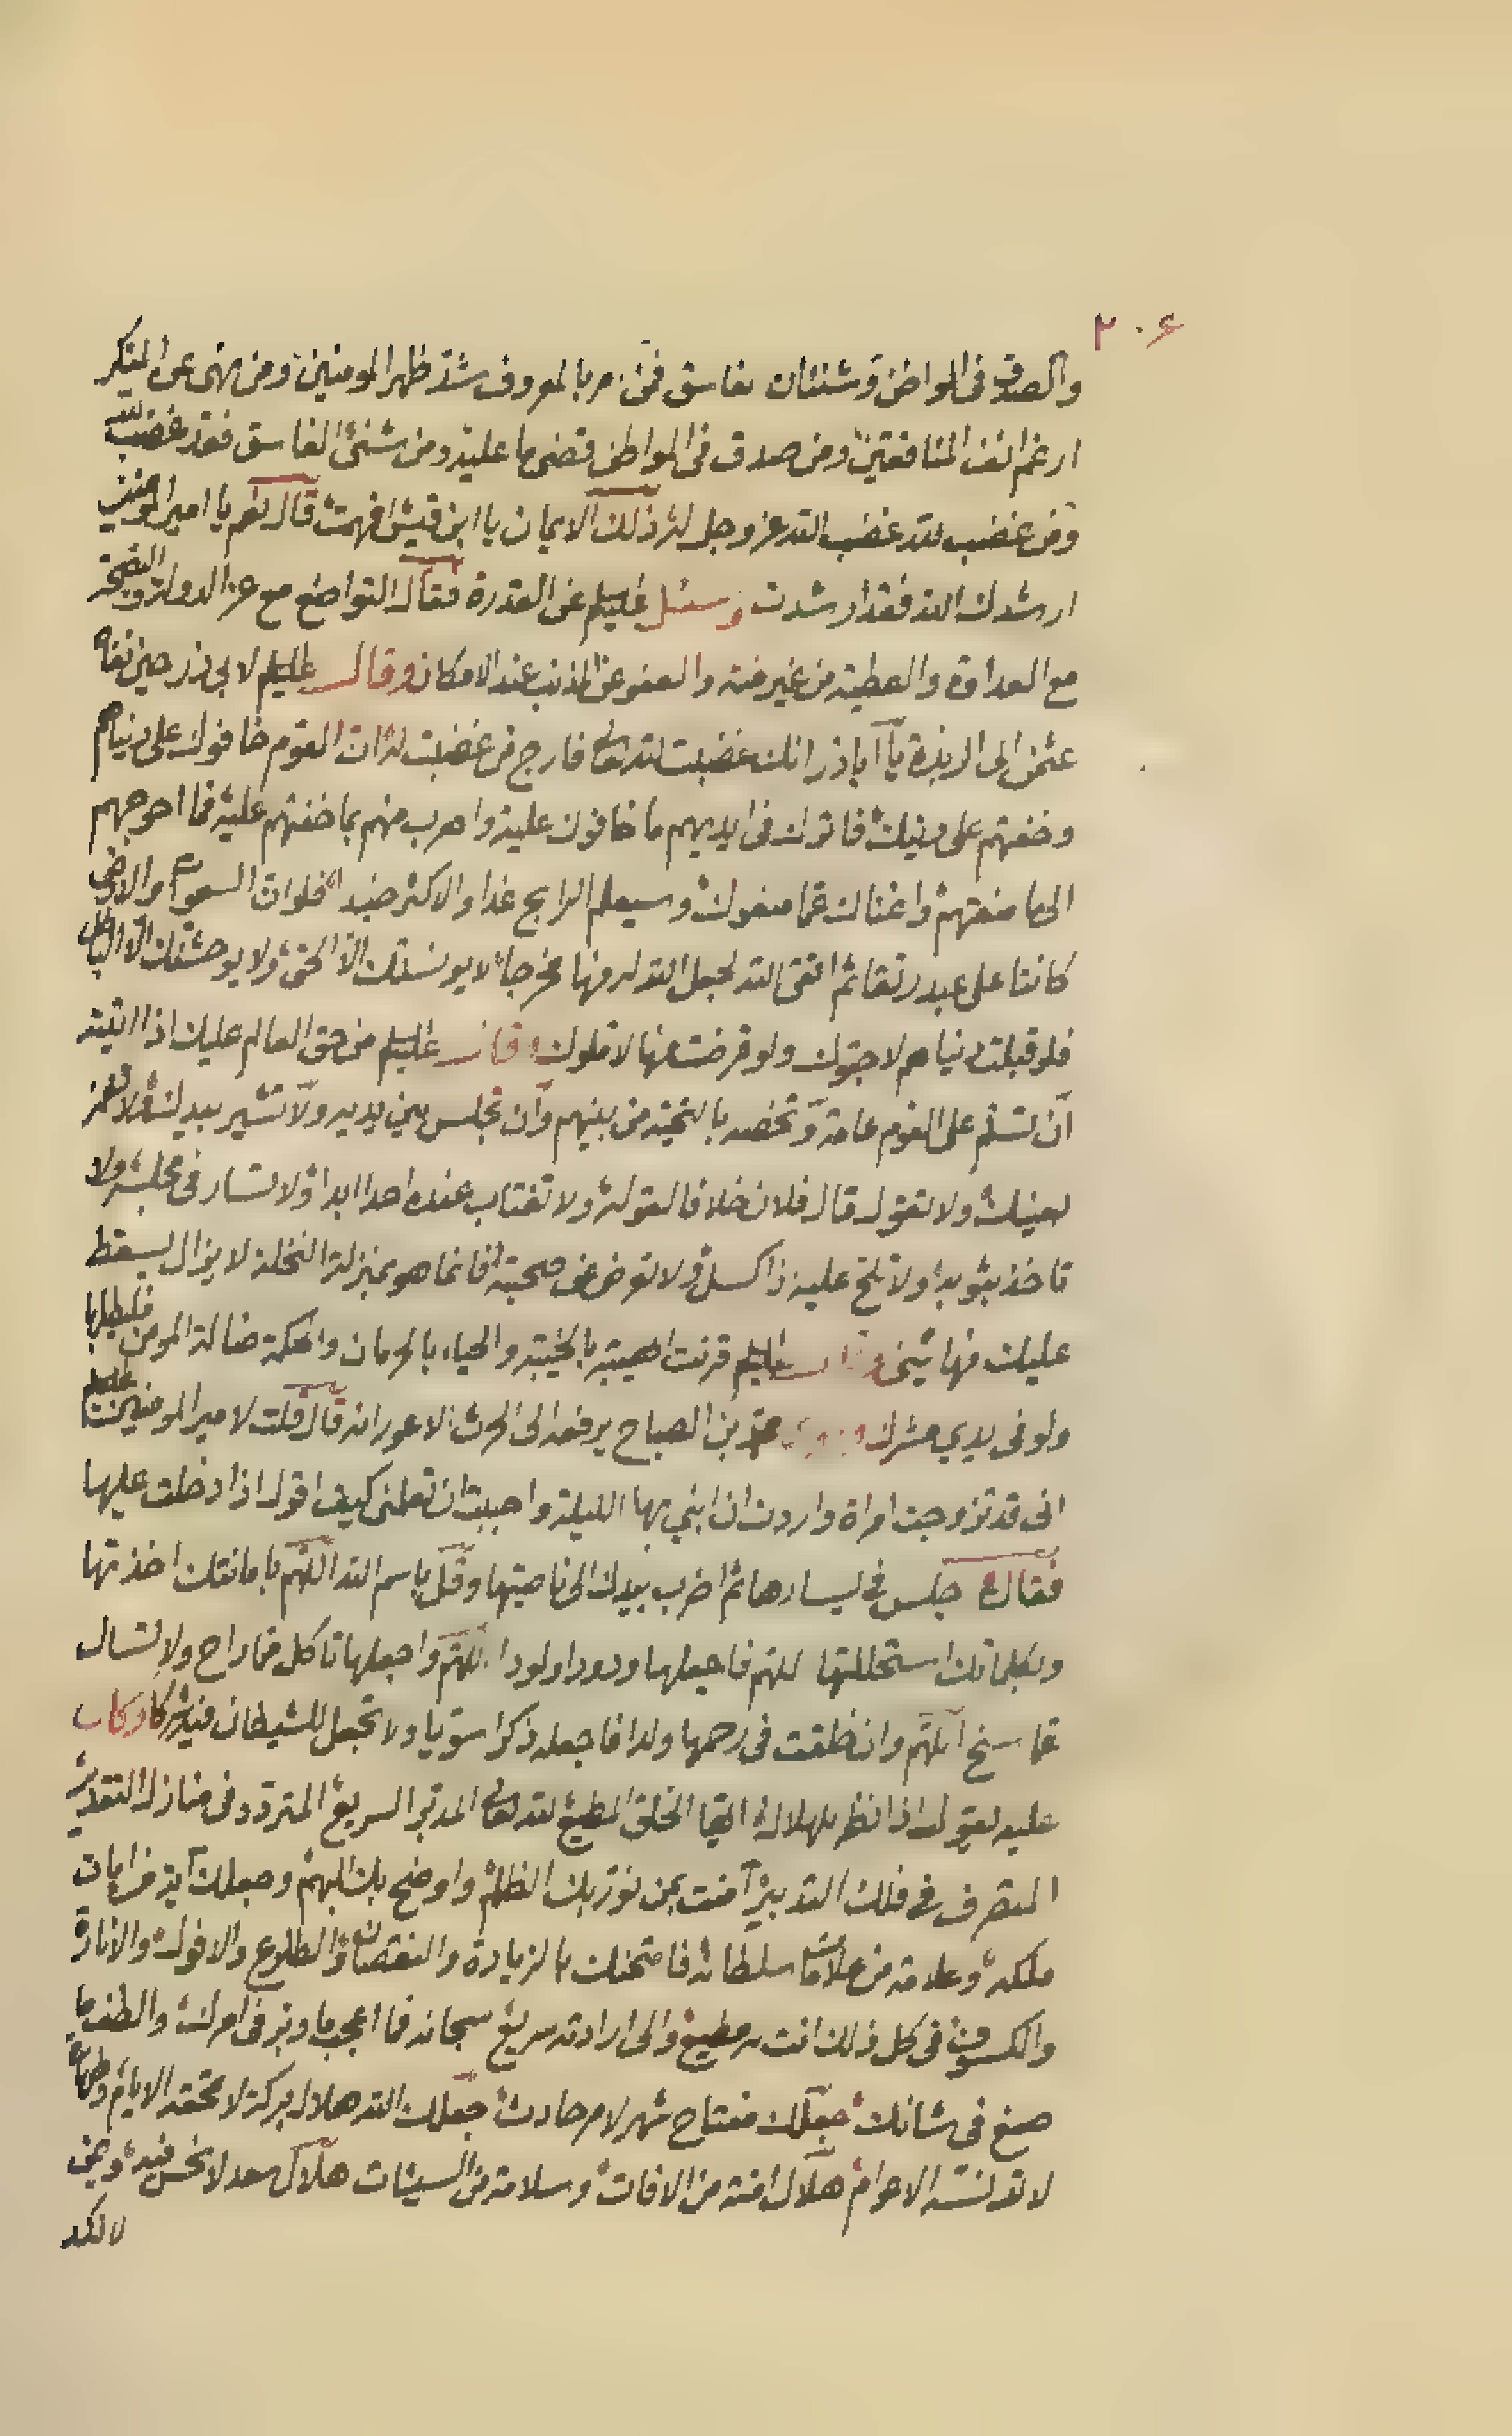 ٢٠٦
والصدق فى المواطن وشنئان الفاسق فمن امر بالمعروف شد ظهر المومنين ومن نهى عن المنكر
ارغم انف المنافقين ومن صدق فى المواطن قضى ما عليه ومن شنئ الفاسق فقد غضب لله
ومن غضب لله غضب الله عز وجل له ذلك الايمان يا ابن قيس افهمت قال نعم يا امير المومنين
ارشدك الله فقد ارشدت وسئل عليلم عن القدرة فقال التواضع مع عز الدولة والنصيحة
مع العداوة والعطية من غير منة والعفو عن المذنب عند الامكان وقال عليلم لابى ذر حين نفاه
عثمن الى الربذة يا آباذر انك غضبت لله تعالى فارج من غضبت له ان القوم خافوك على دنياهم
وخفتهم على دينك فاترك فى ايديهم ما خافوك عليه واهرب منهم بما خفتهم عليه فما احوجهم
الى ما منعتهم واغناك عما منعوك وسيعلم الرابح غدا والاكثر فلوان السموات والارض
كانتا على عبد رتقا ثم اتقى الله لجعل الله له منها مخرجا لا يونسنك الا الحق ولا يوحشنك الا الباطل
فلو قبلت دنياهم لاحبوك ولو قرضت منها لامنوك وقال عليلم من حق العالم عليك اذا اتيته
ان تسلم على القوم عامة وتخصه بالتحية من بينهم وان تجلس بين يديه ولا تشير بيدك ولا تغمز
بعينك ولا تقول قال فلان خلافا لقوله ولا تغتاب عنده احدا ابدا ولا تسار فى مجلسه ولا
تاخذ بثوبه ولا تلح عليه اذا كسل ولا تعرض عن صحبته فانما هو بمنزلة النخلة لا يزال يسقط
عليك منها شئ وقال عليلم قرنت الهيبة بالخيبة والحياء بالحرمان والحكمة ضالة المومن فليطلبها
ولو فى يدي مشرك وروى بن الصباح يرفعه الى الحرث الاعور انه قال قلت لامير المومنين عليلم
انى قد تزوجت امراة واردت ان ابني بها الليلة واحببت ان تعلمنى كيف اقول اذا دخلت عليها
فقال اجلس فى يسارها ثم اضرب بيدك الى ناصيتها وقل باسم الله اللهم بامانتك اخذتها
وبكلماتك استحللتها اللهم فاجعلها ودودا ولودا اللهم واجعلها تاكل مما راح ولا تسال
عما سنح اللهم وان خلقت فى رحمها ولدا فاجعله ذكرا سويا ولا تجعل للشيطان فيه شركا وكان
عليه يقول اذا نظر للهلال ايها الخلق المطيع لله تعالى المدبر السريع المتردد فى منازل التقدير
المتصرف فى فلك التدبير آمنت بمن نور بك الظلم واوضح بك البهم وجعلك آية من ايات
ملكه وعلامة من علامات سلطانه فامتحنك بالزيادة والنقصان والطلوع والافول والانارة
والكسوف فى كل ذلك انت له مطيع والى ارادته سريع سبحانه فما اعجب ما دبر فى امرك والطف ما
صنع فى شانك جعلك مفتاح شهر لامر حادث جعلك الله هلال بركة لا تمحقه الايام وطهارة
لا تدنسه الاحوام هلال امنة من الافات وسلامة من السيئات هلال سعد لا نحس فيه ويمن
لا نكد